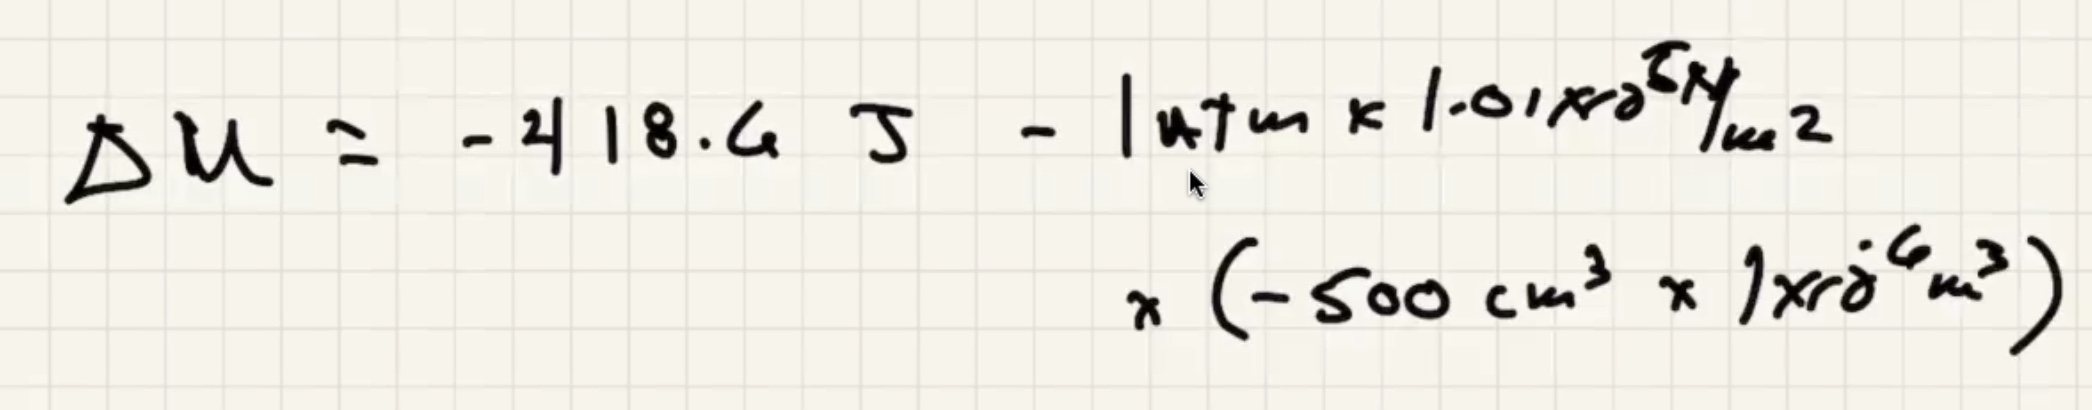 ΔU = -418.6 J - 1 atm x 1.01x10⁵ N/m²
x (-500 cm³ x 1x10⁻⁶ m³)